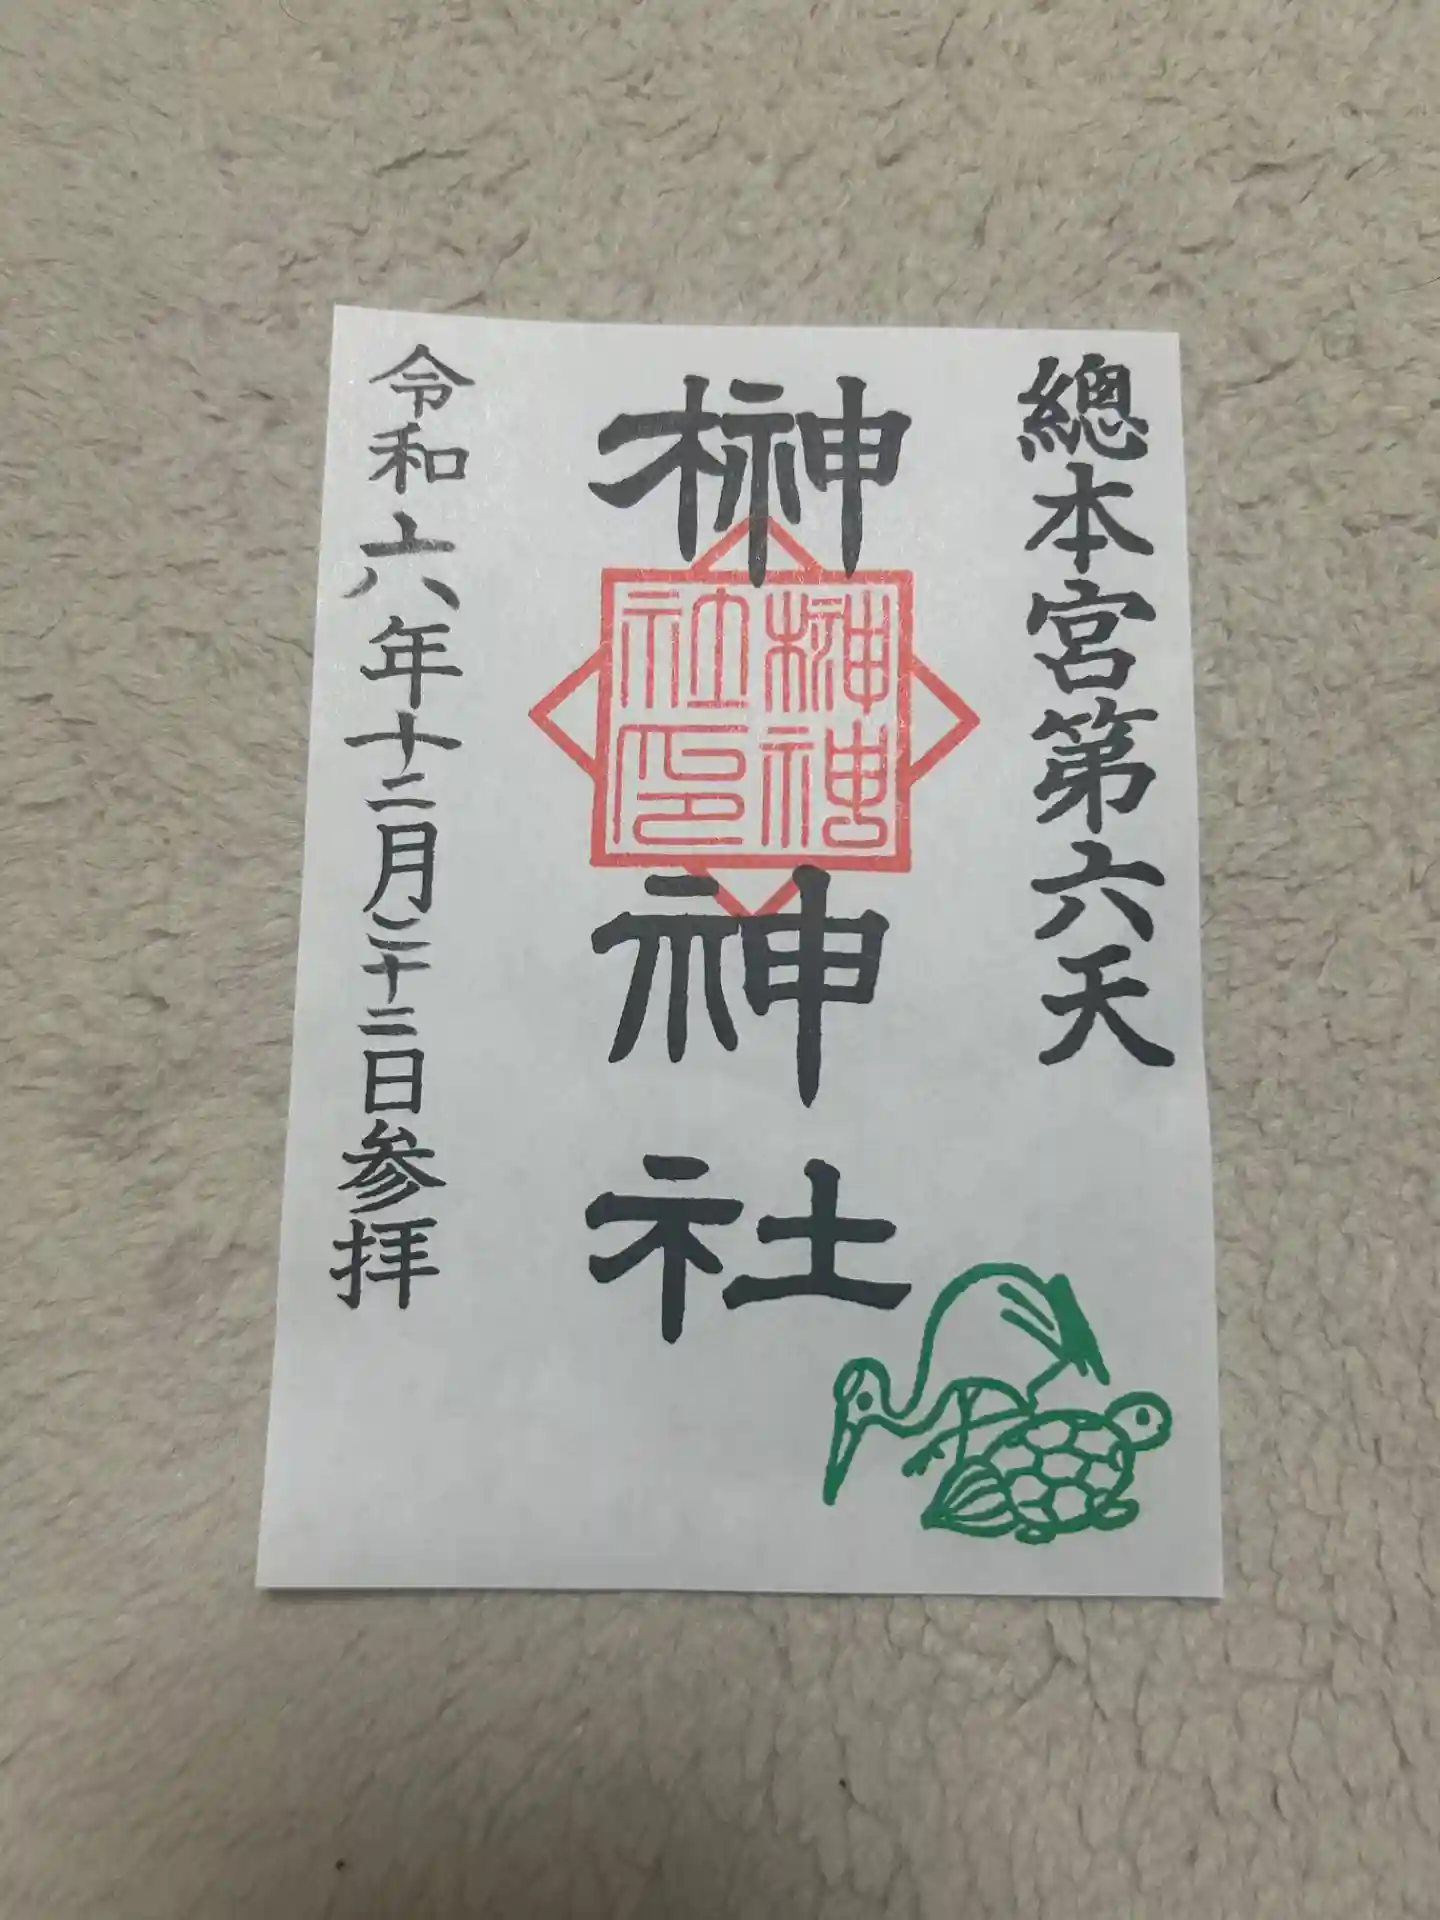 總本宮第六天
榊神社
榊神社印
令和六年十二月二十二日参拝